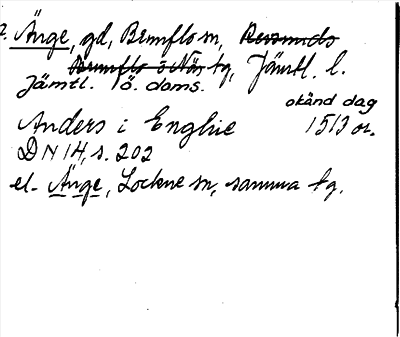 ?. Änge, gd, Brunflo sn, Revsunds
Brunflo o Näs tg, Jämtl. l.
Jämtl. ö. doms.
okänd dag
Anders i Enghie 1513 or.
DN 14, s. 202
el. Änge, Lockne sn, samma tg.